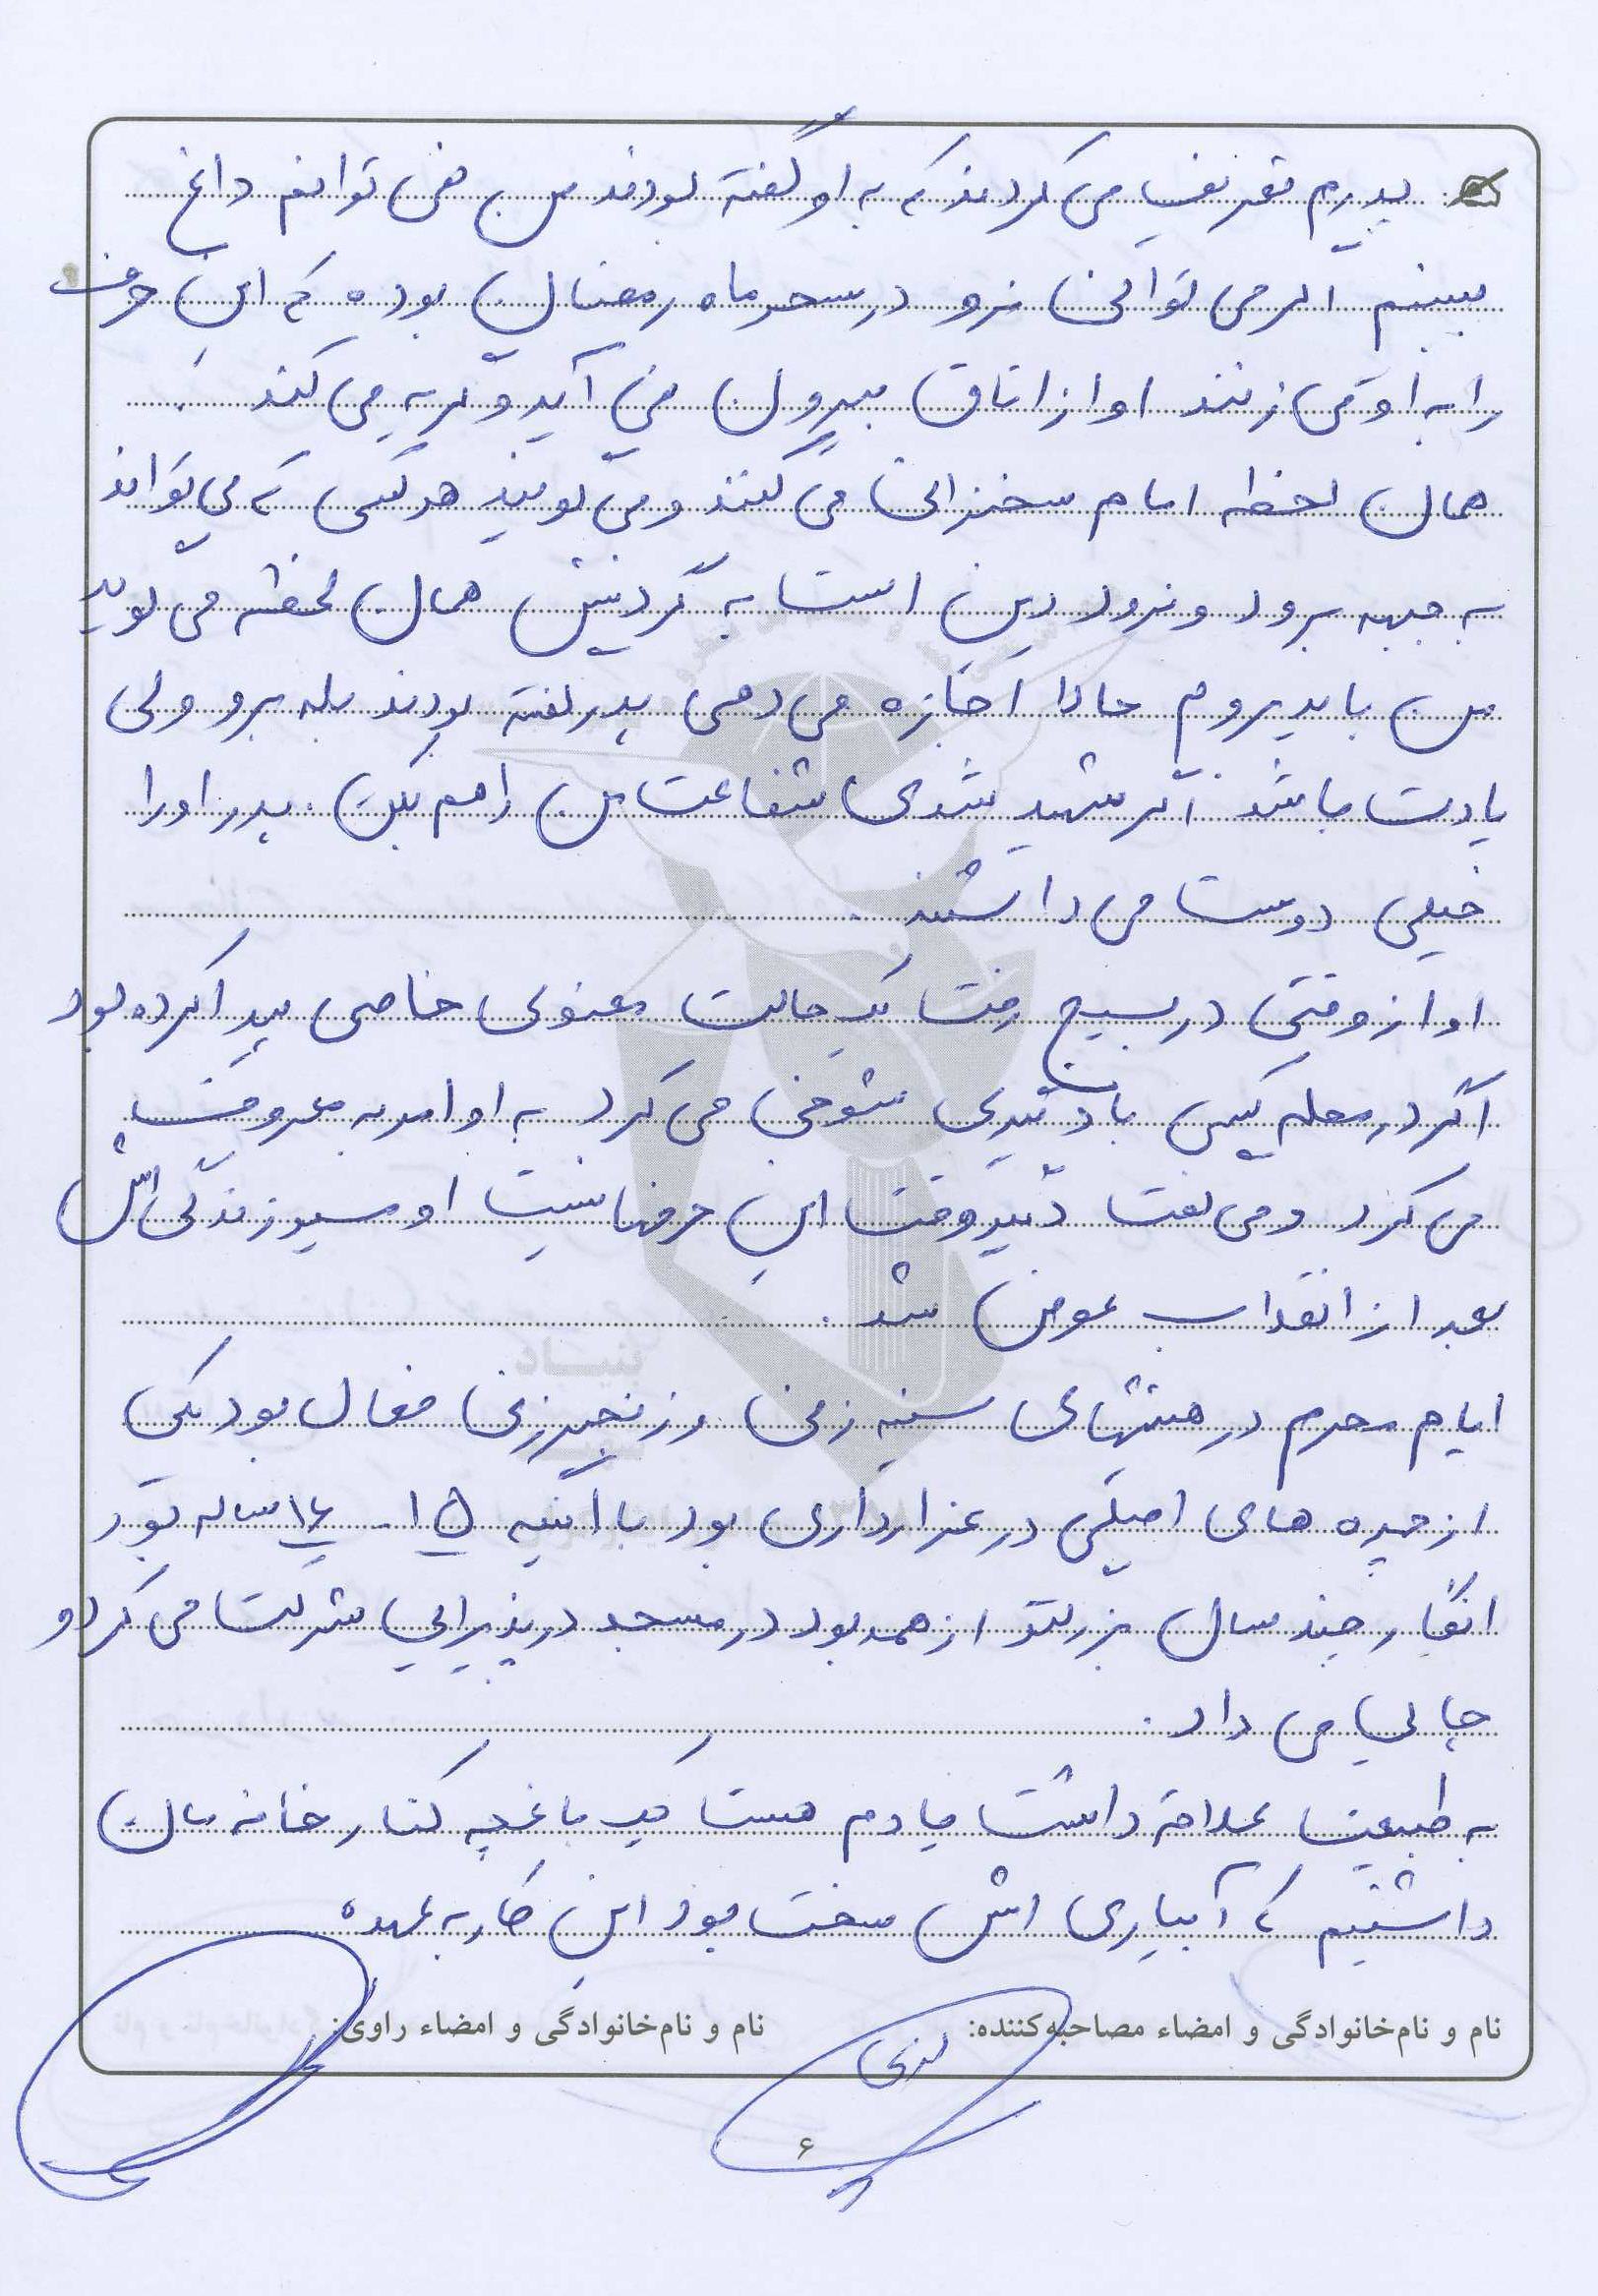 پدرم تعریف می کردند که به او گفته بودند من نمی توانم داغ
ببینم اگر می توانی نرو در سحر ماه رمضان بوده که این حرف
را به او می زنند او از اتاق بیرون می آید و گریه می کند .
همان لحظه امام سخنرانی می کنند و می گویند هر کسی که می تواند
به جبهه برود و نرود دین است به گردنش همان لحظه می گوید
من باید بروم حالا اجازه می دهی پدر گفته بودند بله برو ولی
یادت باشد اگر شهید شدی شفاعت من را هم بکن . پدر او را
خیلی دوست می داشتند .
او از وقتی در بسیج رفت یک حالت معنوی خاصی پیدا کرده بود
اگر در محله کسی با دیگری شوخی می کرد به او امر به معروف
می کرد و می گفت دیگر وقت این حرفها نیست او مسیر زندگی اش
بعد از انقلاب عوض شد .
ایام محرم در هیئتهای سینه زنی و زنجیرزنی فعال بود یکی
از چهره های اصلی در عزاداری بود با آنکه ۱۵ - ۱۶ ساله بود
انگار چند سال بزرگتر از همه بود در مسجد در پذیرایی شرکت می کرد و
چایی می داد .
به طبیعت علاقه داشت یادم هست یک باغچه کنار خانه مان
داشتیم که آبیاری اش سخت بود این کار به عهده
نام و نام‌خانوادگی و امضاء مصاحبه‌کننده:
نام و نام‌خانوادگی و امضاء راوی:
۶